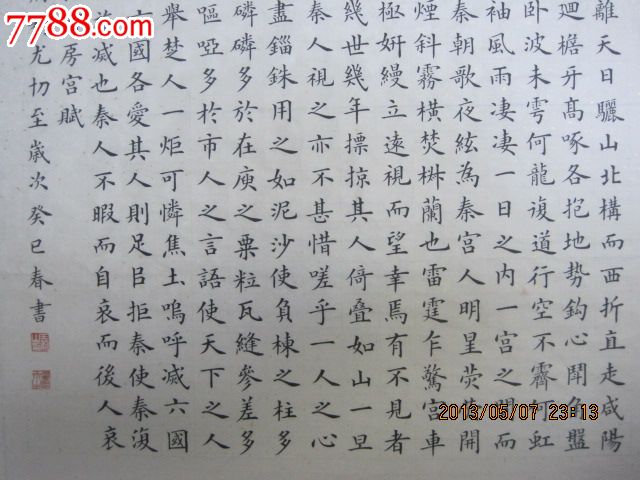 7788.com
離天日驪山北構而西折直走咸陽
廻檐牙高啄各抱地勢鈎心鬪角盤
卧波未雩何龍複道行空不霽何虹
袖風雨凄凄一日之內一宮之間而
秦朝歌夜絃為秦宮人明星熒熒開
煙斜霧橫焚椒蘭也雷霆乍驚宮車
極妍縵立遠視而望幸焉有不見者
幾世幾年摽掠其人倚疊如山一旦
秦人視之亦不甚惜嗟乎一人之心
盡錙銖用之如泥沙使負棟之柱多
磷磷多於在庾之粟粒瓦縫參差多
嘔啞多於市人之言語使天下之人
舉楚人一炬可憐焦土嗚呼滅六國
國各愛其人則足㠯拒秦使秦復
滅也秦人不暇而自哀而後人哀
房宮賦
尤切至歲次癸巳春書
2013/05/07 23:13